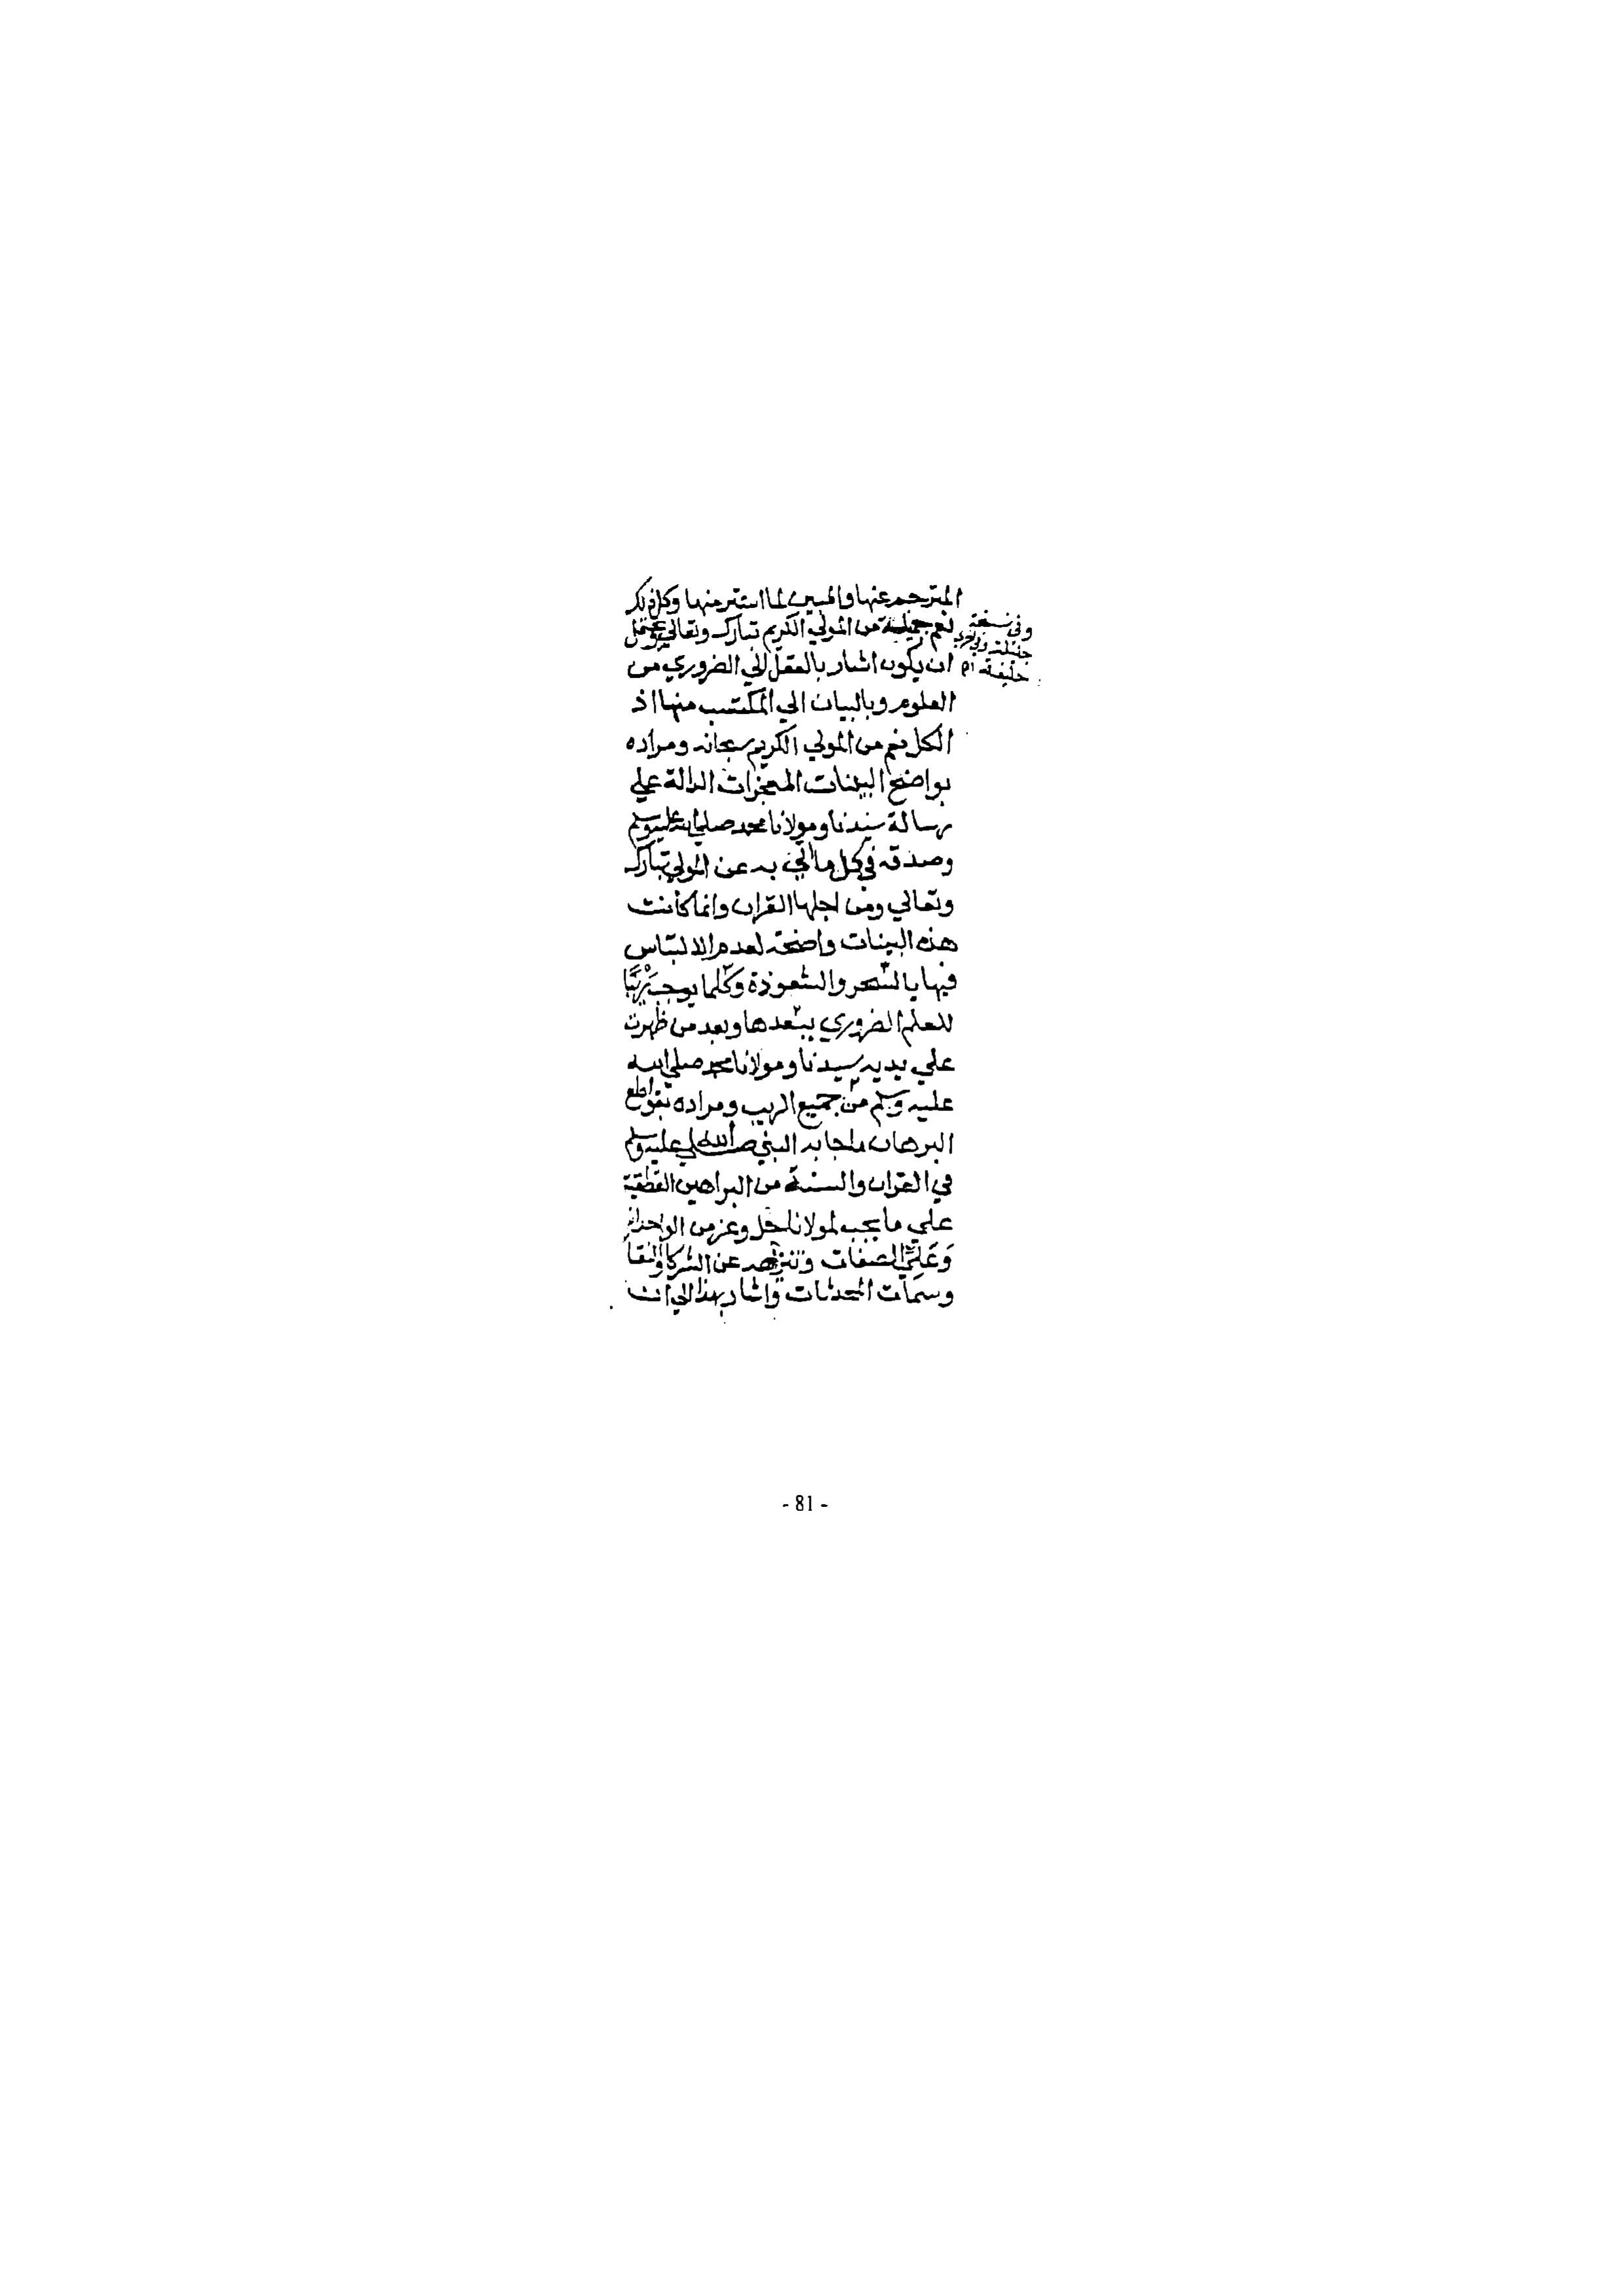 المترجم عنها والمبين لما استتر منها وكل ذلك
نعم جميلة من المولي الكريم تبارك وتعالي ويحتمل
وفي نسخة
جليلة وفي اخري
خليفة ام
ان يكون اشار بالعقل الي الضروري من
العلوم وبالبيان الي المكتسب منها اذ
الكل نعم من المولي الكريم سبحانه ومراده
بواضح البينات المعجزات الدالة علي
رسالة سيدنا ومولانا محمد صلي الله عليه وسلم
وصدقه في كل ما اتي به عن المولي تبارك
وتعالي ومن اجلها القران وانما كانت
هذه البينات واضحة لعدم الالتباس
فيها بالسحر والشعوذة وكلما يوجب ريبا
للعلم الضروري ببعدها وبعد من ظهرت
علي يديه سيدنا ومولانا محمد صلي الله
عليه وسلم من جميع الريب ومراده بقواطع
البرهان ما جا به النبي صلي الله عليه وسلم
في القران والسنة من البراهين القطعية
علي ما يجب لمولانا جل وعز من الوحدانية
وعلي الصفات وتنزهه عن الشركا والنقا
وسمات المحدثات واشار بهذا الي ان
- 81 -